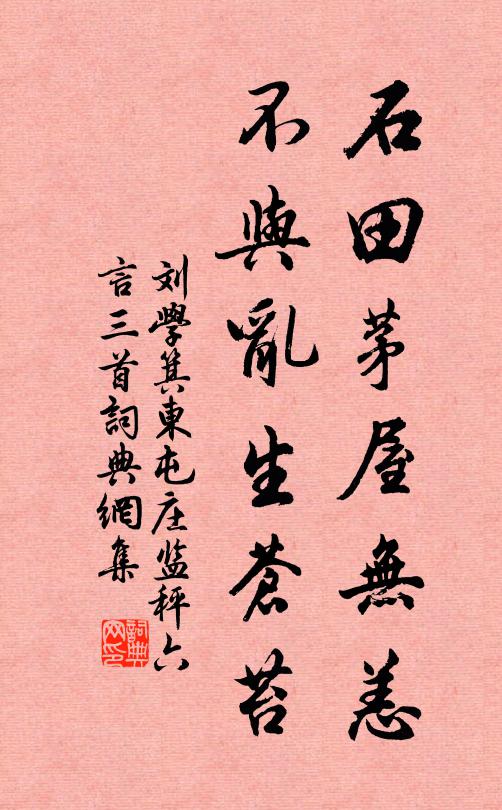 石田茅屋無恙
不與亂生蒼苔
刘學箕東屯庄监秤六
言三首詞典網集
詞典
网印